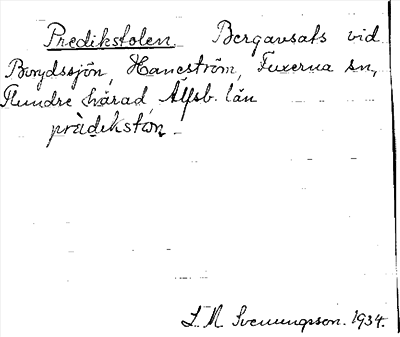 Predikstolen. Bergavsats vid
Burydssjön, Haneström, Fuxerna sn,
Flundre härad, Älfsb. län
prädikstōn.
L. M. Svenungsson. 1934.